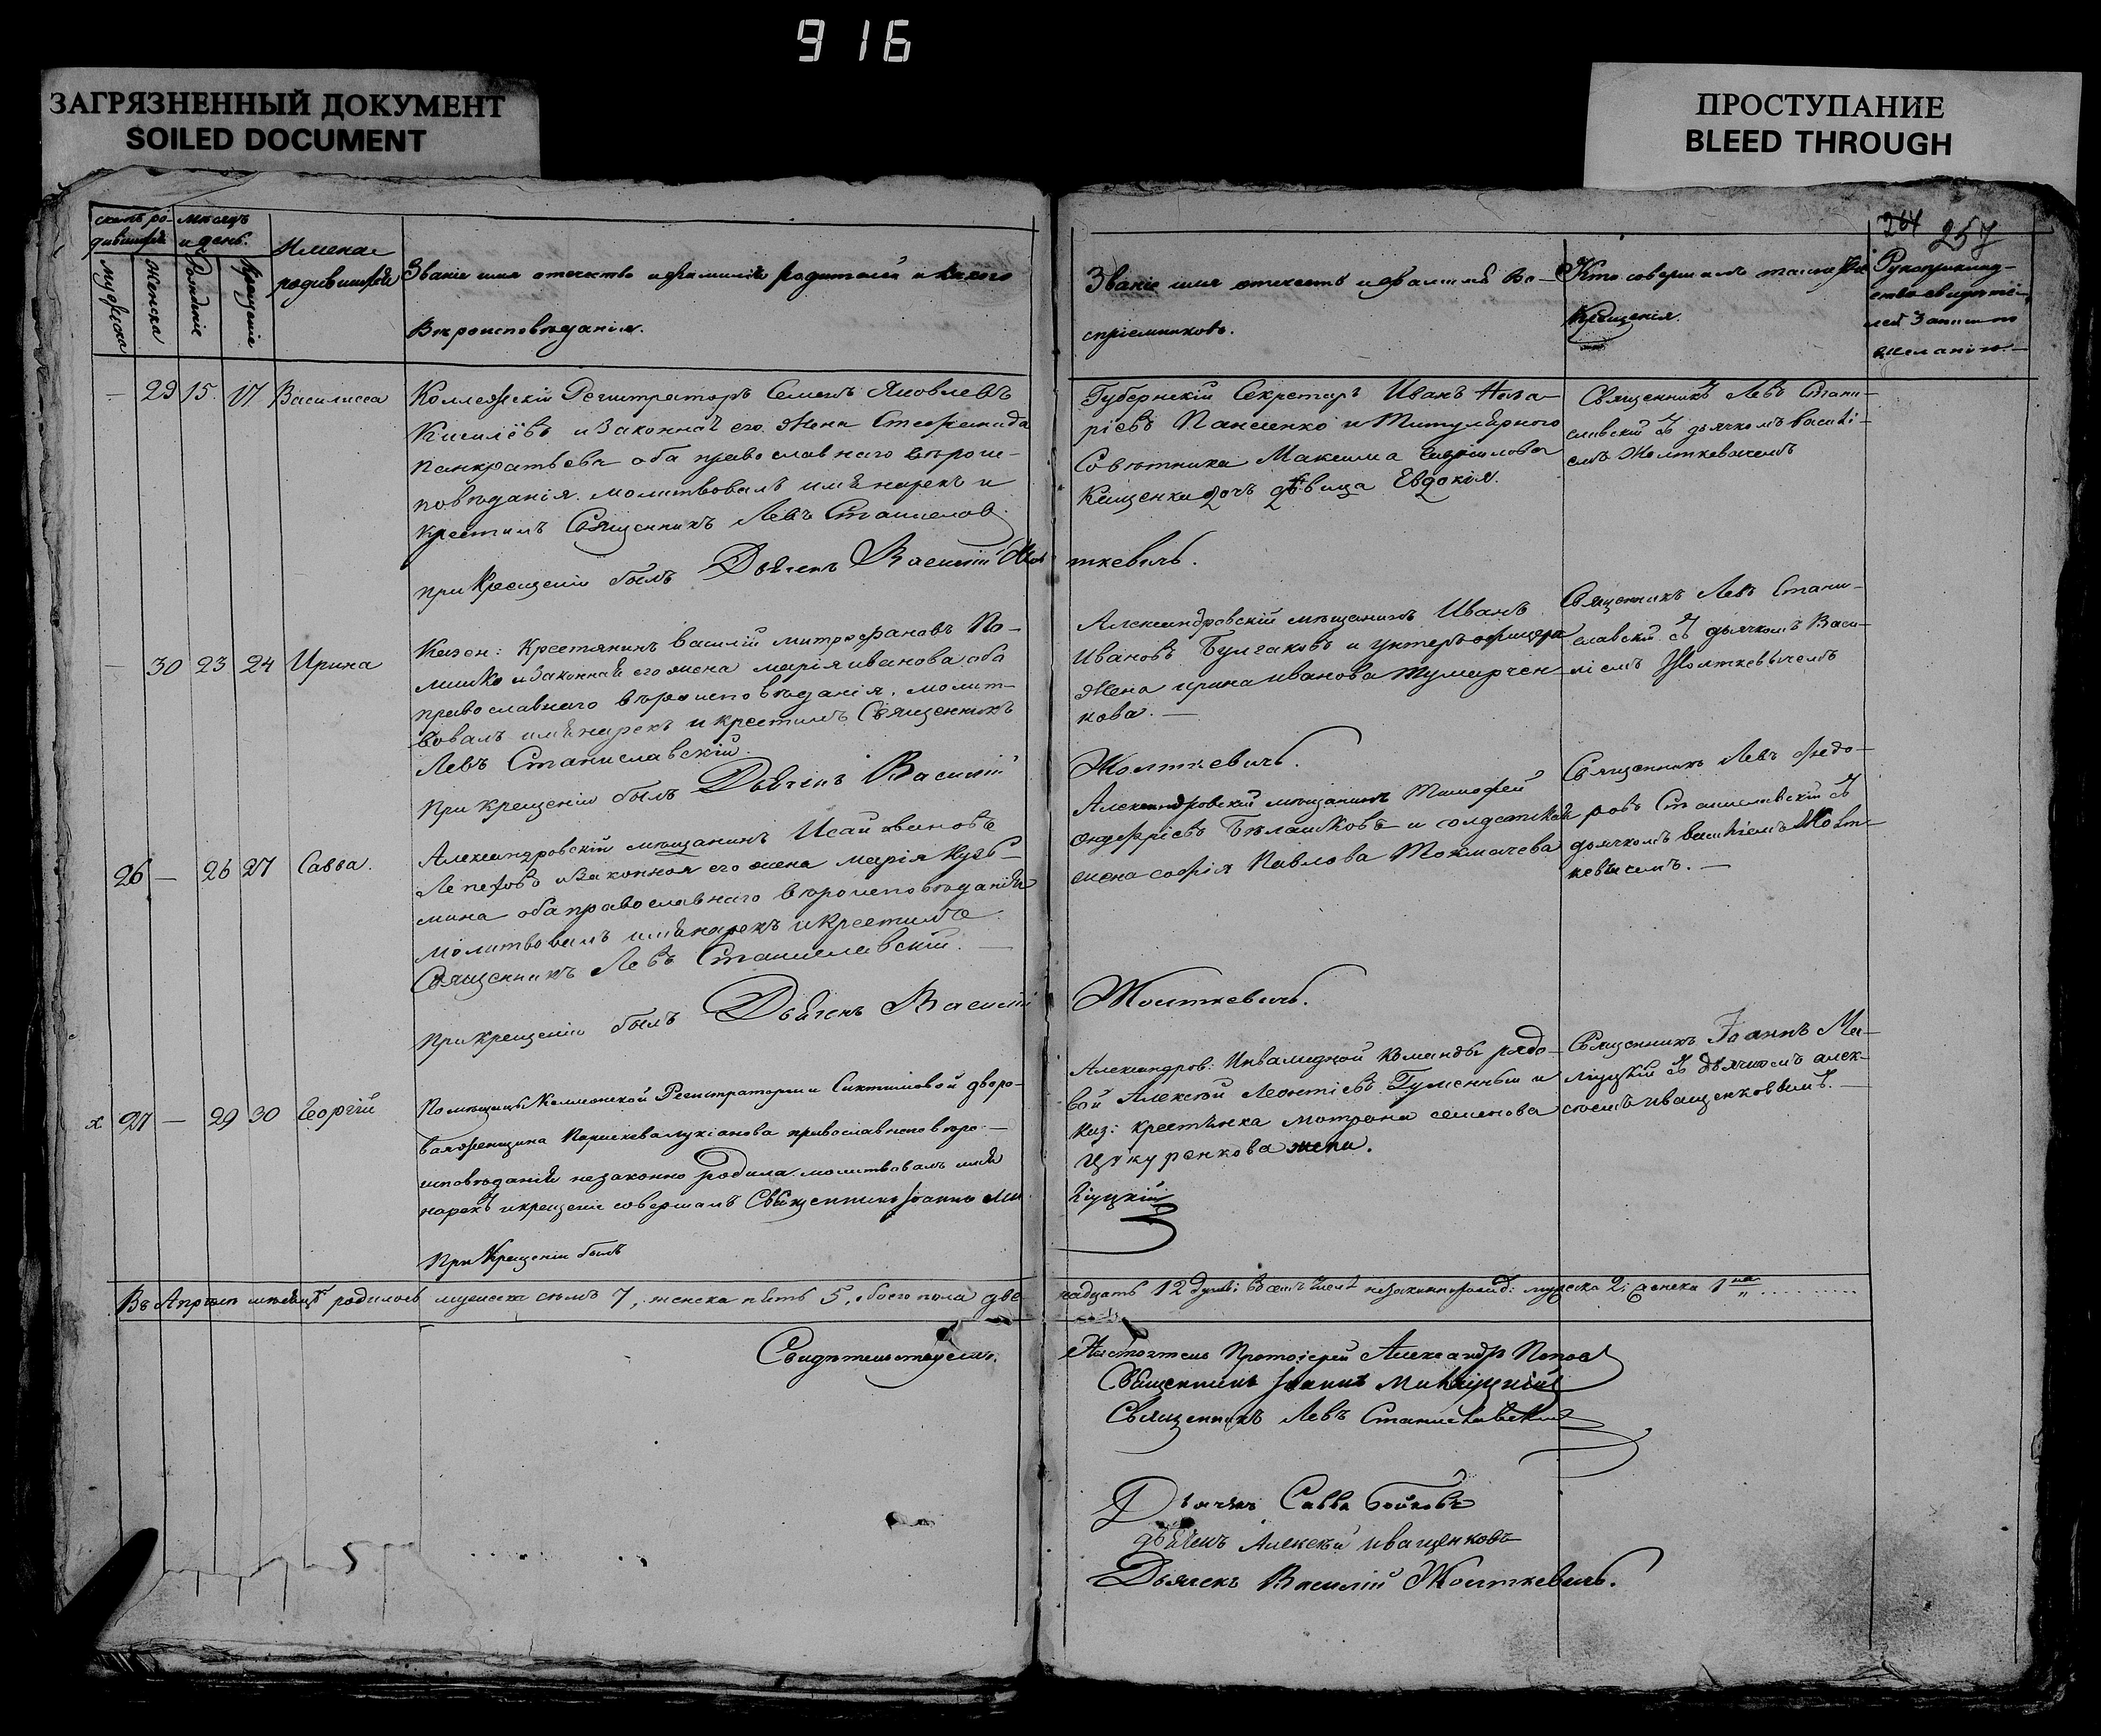 916
ЗАГРЯЗНЕННЫЙ ДОКУМЕНТ
SOILED DOCUMENT
ПРОСТУПАНИЕ
BLEED THROUGH
264 257
мѣсяцъ
и день.
Имена
родившихся
Мужеска
Женска
Рожденіе
Крещеніе
Званіе имя отчество и фамилія родителей и какого
Вѣроисповѣданія.
Званіе имя отчество и фамилія Во-
спріемниковъ.
Кто совершалъ таинство
Крещенія.
Рукоприклад-
ство свидѣте-
лей записи по
желанію.
— 29 15 17 Василисса
Коллежскій Регистраторъ Семенъ Яковлевъ
Киселёвъ и Законная его Жена Стефанида
Панкратьева оба православнаго вѣроис-
повѣданія. молитвовалъ имя нарекъ и
крестилъ Священникъ Левъ Станислав.
при Крещеніи былъ Дьячекъ Василій Жол
Губернскій Секретарь Иванъ Наза-
рієвъ Панченко и Титулярного
Совѣтника Максима Гаврилова
Кащенка дочь дѣвица Евдокія.
ткевичъ.
Священникъ Левъ Стани-
славскій съ дьячкомъ Василі-
емъ Жолткевичемъ
— 30 23 24 Ирина
Казен: Крестянинъ Василій Митрофановъ По-
лишко и Законная его жена Марія Иванова оба
православнаго вѣроисповѣданія. молит-
вовалъ имя нарекъ и крестилъ Священникъ
Левъ Станиславскій.
При крещеніи былъ Дьячекъ Василій
Александровскій мѣщанинъ Иванъ
Ивановъ Булгаковъ и унтеръ-офицера
Жена Ирина Иванова Тумарчен-
кова. —
Жолткевичъ.
Священникъ Левъ Стани-
славскій съ дьячкомъ Васи-
ліемъ Жолткевычемъ
26 — 26 27 Савва.
Александровскій мѣщанинъ Исай Ивановъ
Лепеховъ и Законная его жена Марія Кузь-
мина оба православнаго вѣроисповѣданія
молитвовалъ имя нарекъ и крестилъ
Священникъ Левъ Станиславскій. —
При крещеніи былъ Дьячекъ Василій
Александровскій мѣщанинъ Тимофей
Онуфріевъ Бѣлашковъ и солдатская
жена Софія Павлова Токмачева
Жолткевичъ.
Священникъ Левъ Федо-
ровъ Станиславскій съ
дьячкомъ Василіемъ Жолт-
кевичемъ. —
х 27 — 29 30 Георгій
Помѣщицы Коллежской Регистраторши Сиктимовой дворо-
вая женщина Параскева Лукіанова православнаго вѣро-
исповѣданія незаконно родила. молитвовалъ имя
нарекъ и крещеніе совершалъ Священникъ Іоаннъ Ми
При Крещеніи былъ
Александров: Инвалидной Команды рядо-
вой Алексѣй Леонтіевъ Гуменный и
Каз: крестянка Матрона Семенова
Цукуренкова жена.
Священникъ Іоаннъ Ми-
съ дьячкомъ Алек-
сѣемъ Иващенковымъ. —
Въ Апрѣлѣ мѣсяцѣ родилось мужеска семь 7, женска пять 5, обоего пола две
надцать 12 душъ; въ семъ числѣ незаконнорожд: мужеска 2; женска 1
Свидѣтельствуемъ.
Настоятель Протоіерей Александръ Поповъ
Священникъ Іоаннъ
Священникъ Левъ Станиславскій
Дьячекъ Савва Бойковъ
дьячекъ Алексѣй Иващенковъ
Дьячекъ Василій Жолткевичъ.